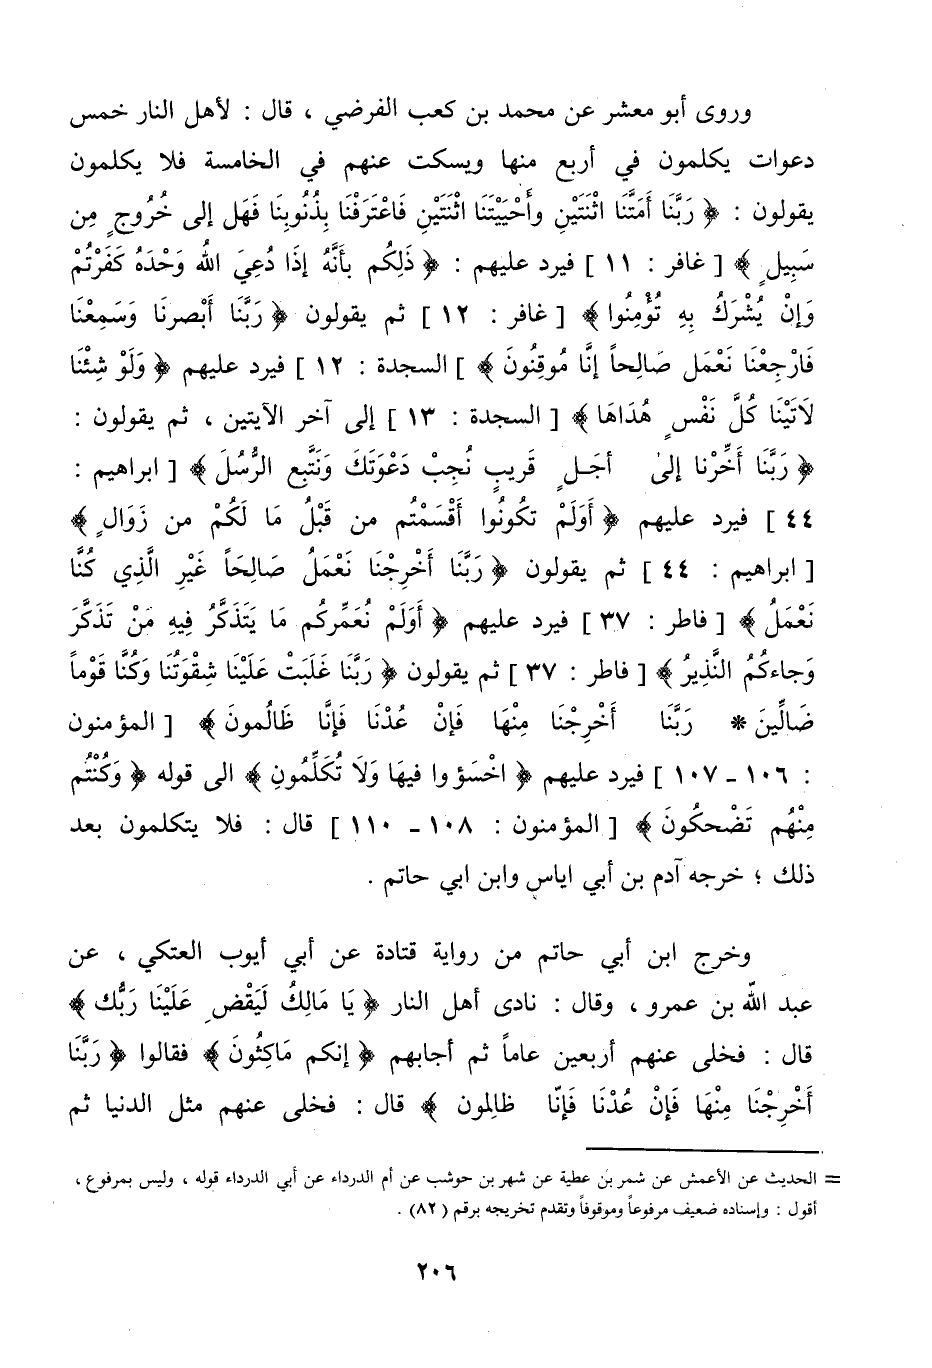 وروى أبو معشر عن محمد بن كعب الفرضي ، قال : لأهل النار خمس
دعوات يكلمون في أربع منها ويسكت عنهم في الخامسة فلا يكلمون
يقولون : ﴿ رَبَّنَا أَمَتَّنَا اثْنَتَيْنِ وأَحْيَيْتَنَا اثْنَتَيْنِ فَاعْتَرَفْنَا بِذُنُوبِنَا فَهَل إلى خُرُوجٍ مِن
سَبِيلٍ ﴾ [ غافر : ١١ ] فيرد عليهم : ﴿ ذَلِكُم بأَنَّهُ إذَا دُعِيَ اللهُ وَحْدَهُ كَفَرْتُمْ
وَإنْ يُشْرَكْ بِهِ تُؤْمِنُوا ﴾ [ غافر : ١٢ ] ثم يقولون ﴿ رَبَّنَا أَبْصرنَا وَسَمِعْنَا
فَارْجِعْنَا نَعْمَل صَالِحاً إنَّا مُوقِنُونَ ﴾ ] السجدة : ١٢ ] فيرد عليهم ﴿ وَلَوْ شِئْنَا
لَاتَيْنَا كُلَّ نَفْسٍ هُدَاهَا ﴾ [ السجدة : ١٣ ] إلى آخر الآيتين ، ثم يقولون :
﴿ رَبَّنَا أَخِّرْنا إلىٰ أجَلٍ قَرِيبٍ نُجِبْ دَعْوَتَكَ وَنَتَّبِع الرُّسُلَ ﴾ [ ابراهيم :
٤٤ ] فيرد عليهم ﴿ أَوَلَمْ تكُونُوا أَقْسَمْتُم من قَبْلُ مَا لَكُمْ من زَوَالٍ ﴾
[ ابراهيم : ٤٤ ] ثم يقولون ﴿ رَبَّنَا أَخْرِجْنَا نَعْمَلُ صَالِحَاً غَيْرِ الَّذِي كُنَّا
نَعْمَلُ ﴾ [ فاطر : ٣٧ ] فيرد عليهم ﴿ أَوَلَمْ نُعَمِّركُم مَا يَتَذَكَّرُ فِيهِ مَنْ تَذَكَّرَ
وَجاءكُمُ النَّذِيرُ ﴾ [ فاطر : ٣٧ ] ثم يقولون ﴿ رَبَّنَا غَلَبَتْ عَلَيْنَا شِقْوَتُنَا وَكُنَّا قَوْماً
ضَالِّينَ * رَبَّنَا أَخْرِجْنَا مِنْهَا فَإنْ عُدْنَا فَإنَّا ظَالُمونَ ﴾ [ المؤمنون
: ١٠٦ - ١٠٧ ] فيرد عليهم ﴿ اخْسَؤوا فيهَا وَلَا تُكَلِّمُونِ ﴾ الى قوله ﴿ وَكُنْتُم
مِنْهُم تَضْحكُونَ ﴾ [ المؤمنون : ١٠٨ - ١١٠ ] قال : فلا يتكلمون بعد
ذلك ؛ خرجه آدم بن أبي اياس وابن ابي حاتم .
وخرج ابن أبي حاتم من رواية قتادة عن أبي أيوب العتكي ، عن
عبد الله بن عمرو ، وقال : نادى أهل النار ﴿ يَا مَالِكُ لَيَقْضِ عَلَيْنَا رَبُّك ﴾
قال : فخلى عنهم أربعين عاماً ثم أجابهم ﴿ إنكم مَاكِثُونَ ﴾ فقالوا ﴿ رَبَّنَا
أَخْرِجْنَا مِنْهَا فَإنْ عُدْنَا فَإنّا ظالِمون ﴾ قال : فخلى عنهم مثل الدنيا ثم
= الحديث عن الأعمش عن شمر بن عطية عن شهر بن حوشب عن أم الدرداء عن أبي الدرداء قوله ، وليس بمرفوع ،
أقول : وإسناده ضعيف مرفوعاً وموقوفاً وتقدم تخريجه برقم ( ٨٢ ) .
٢٠٦